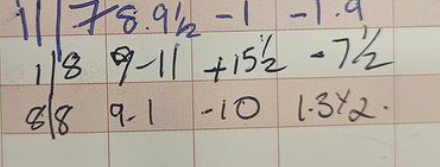 1||78.9½ -1 -1.9
1|8 9-11 +15½ -7½
8|8 9-1 -10 1.3½2.